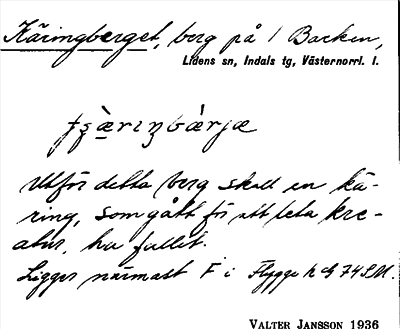 Käringberget, berg på / Backen,
Lidens sn, Indals tg, Västernorrl. l.
Utför detta berg skall en kä-
ring, som gått för att leta kre-
atur, ha fallit.
Ligger närmast F i Flygge h c 74 S.M.
VALTER JANSSON 1936